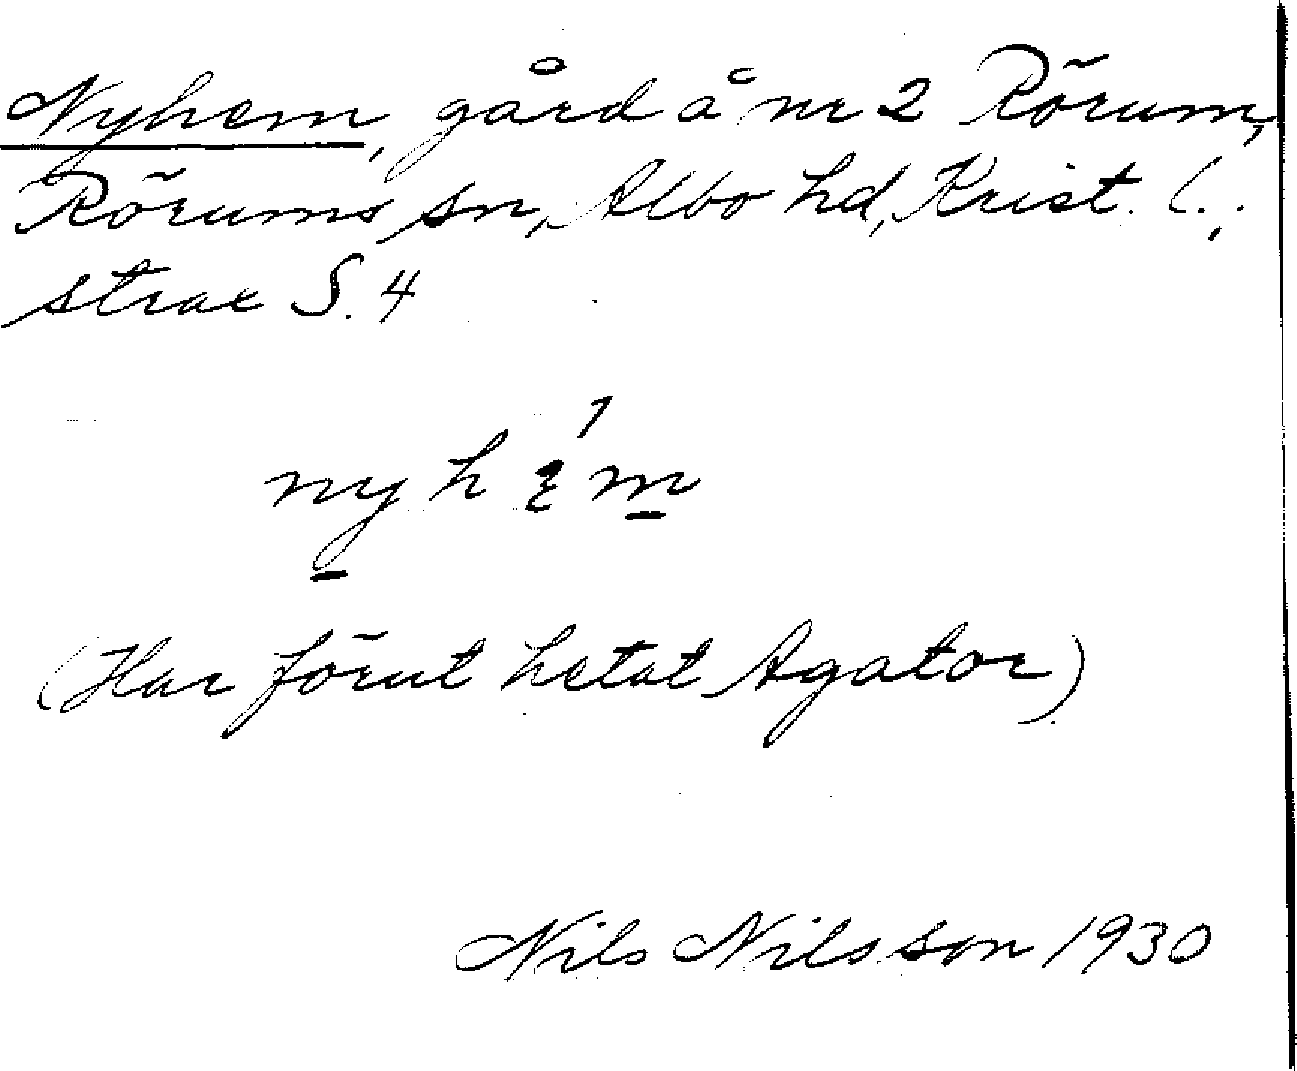 Nyhem, gård å nr 2 Rörum,
Rörums sn, Albo hd, Krist. l.;
strax S. 4
nyhɛ́m
(Har förut hetat Agator)
Nils Nilsson 1930